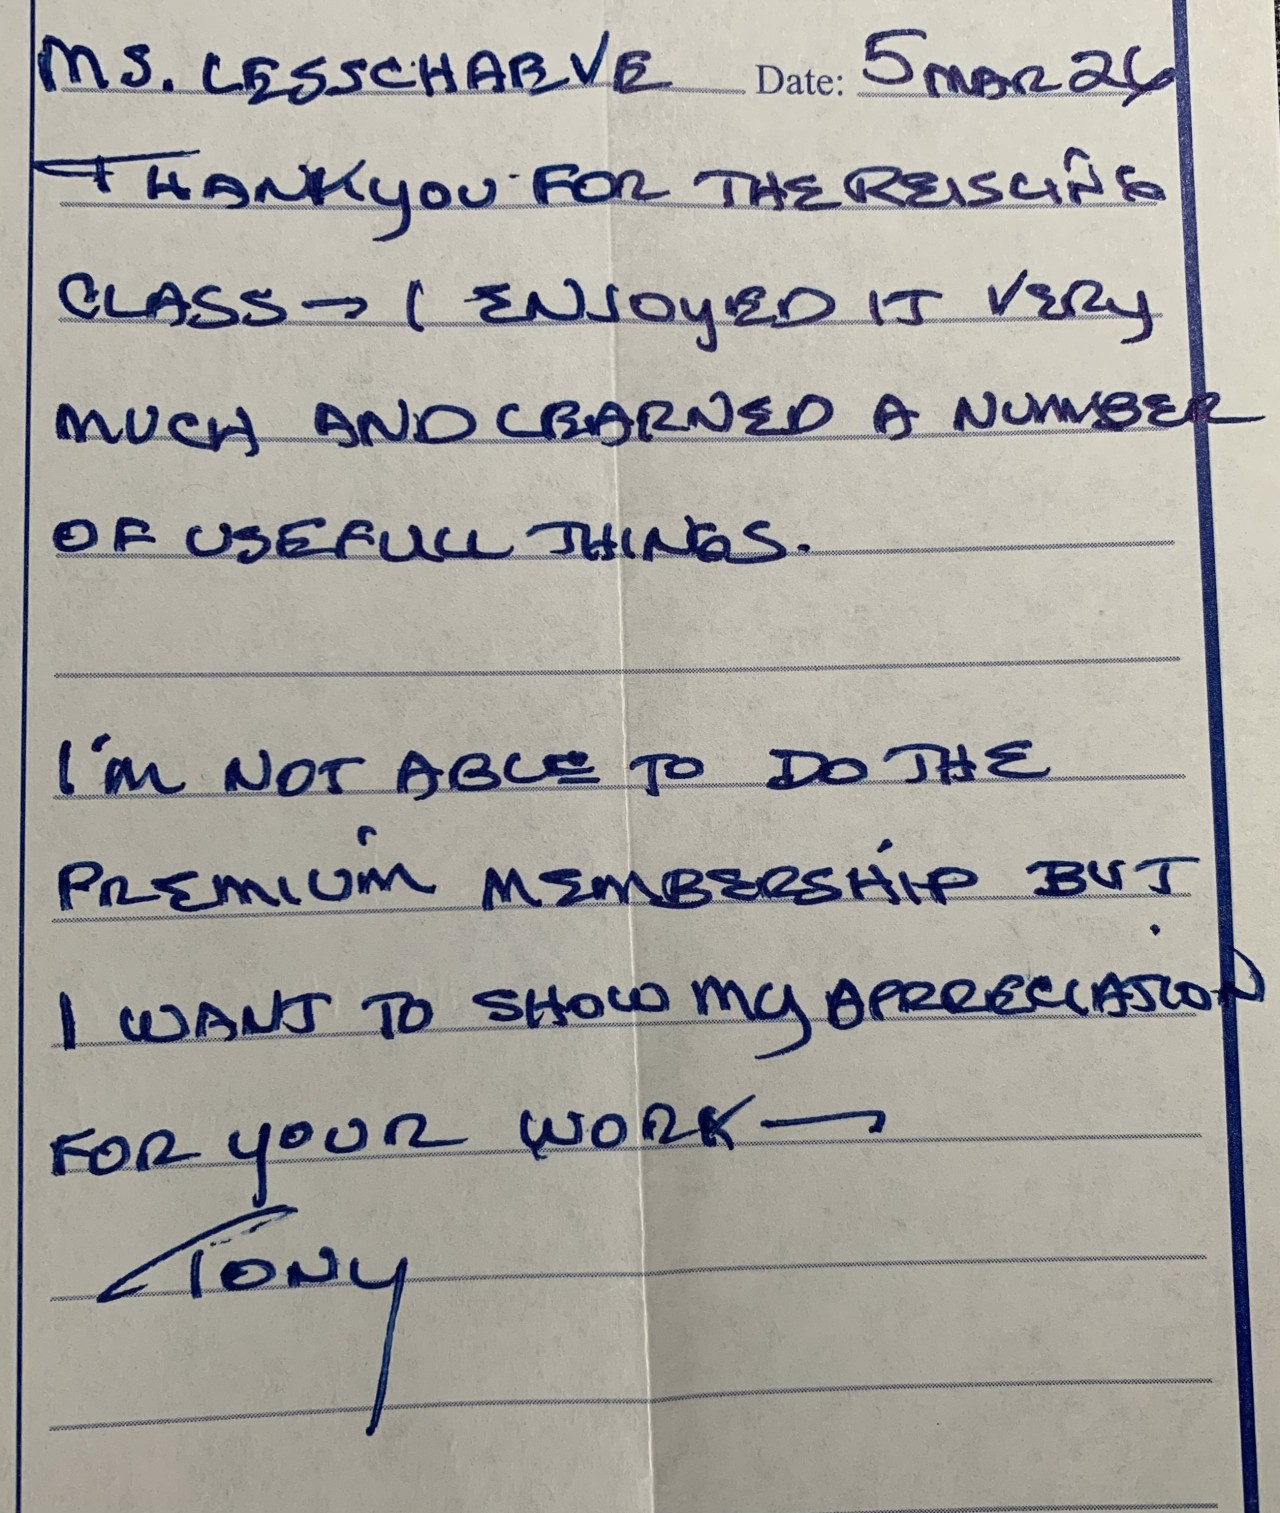 MS. LESSCHAEVE Date: 5 MAR 26
THANK YOU FOR THE REISLING
CLASS → I ENJOYED IT VERY
MUCH AND LEARNED A NUMBER
OF USEFULL THINGS.
I'M NOT ABLE TO DO THE
PREMIUM MEMBERSHIP BUT
I WANT TO SHOW MY APPRECIATION
FOR YOUR WORK —
TONY